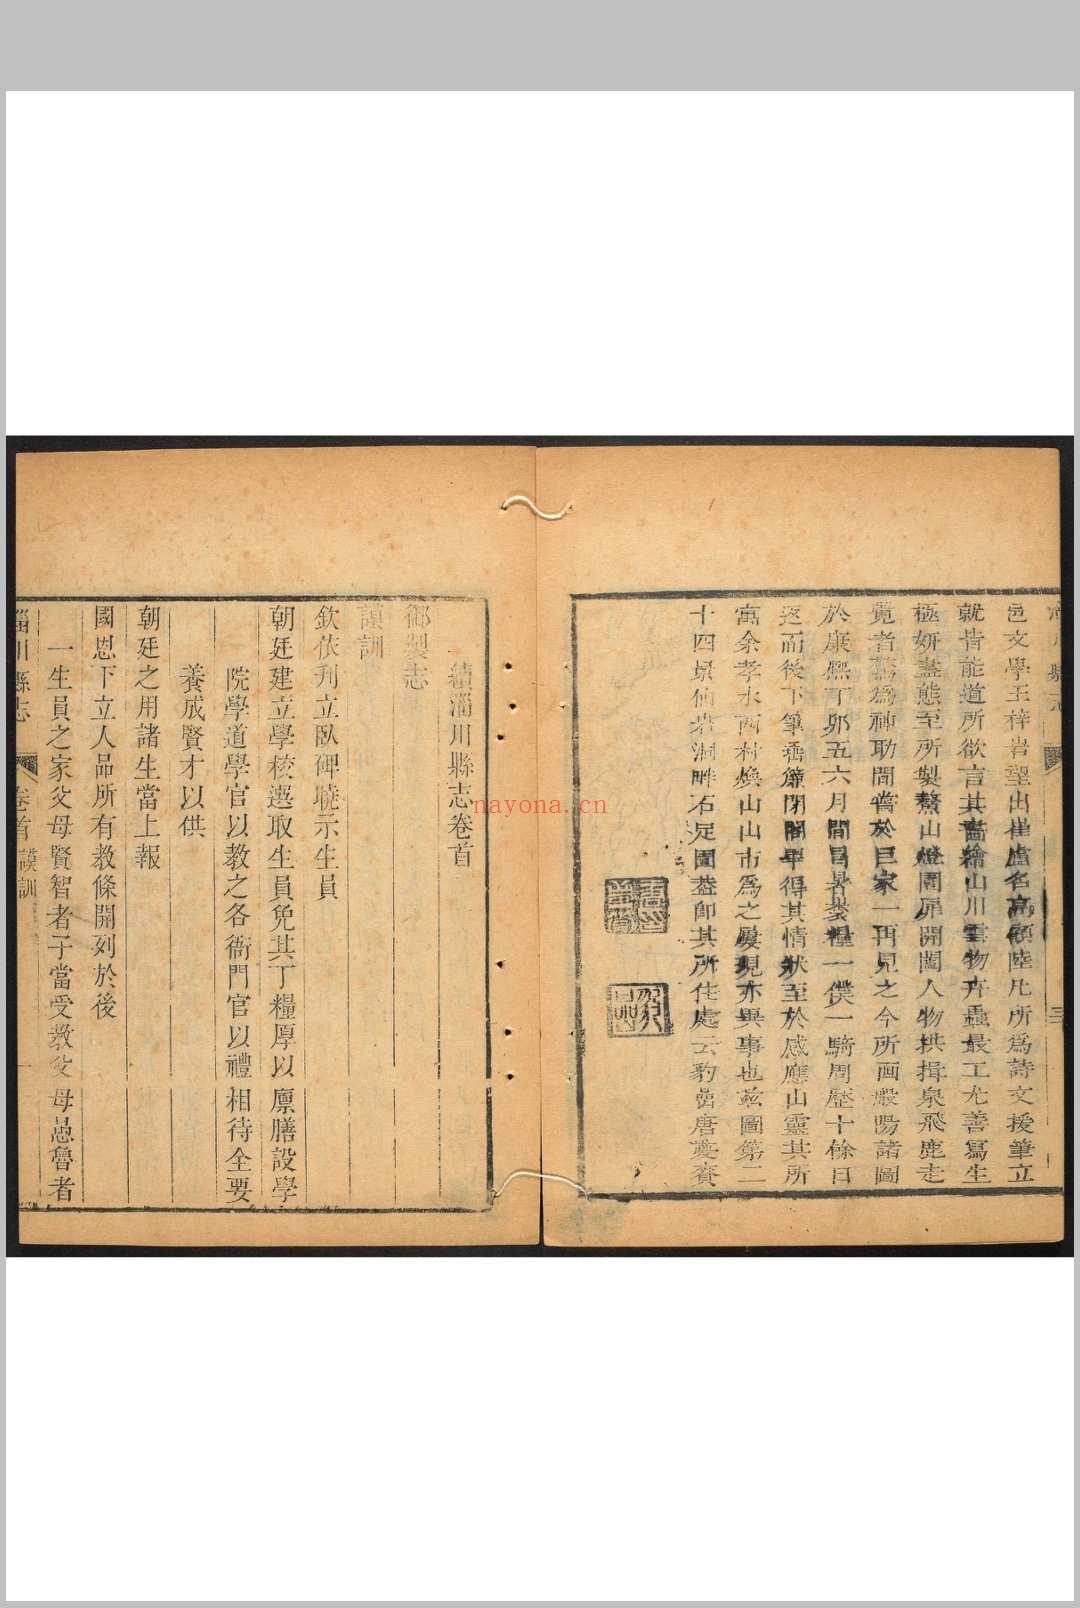 邑文學王梓岩望出崔盧名高顧陸凡所為詩文援筆立
就皆能道所欲言其畵繪山川雲物卉蟲最工尤善寫生
極妍盡態至所製鰲山燈圖屏開闔人物拱揖泉飛鹿走
覽者驚為神助間嘗於巨家一再見之今所画般陽諸圖
於康熙丁卯五六月間冒暑裹糧一僕一騎周歷十餘日
返而後下筆垂簾閉閣畢得其情狀至於感應山靈其所
寓余孝水西村煥山山市為之屢現亦異事也兹圖第二
十四景仙岩洞畔石足園葢即其所住處云豹嵒唐夢賚
三
續淄川縣志卷首
御製志
謨訓
欽依刋立臥碑曉示生員
朝廷建立學校選取生員免其丁糧厚以廪膳設學
院學道學官以教之各衙門官以禮相待全要
養成賢才以供
朝廷之用諸生當上報
國恩下立人品所有教條開列於後
一生員之家父母賢智者子當受教父母愚魯者
淄川縣志 卷首 謨訓 一
nayona.cn